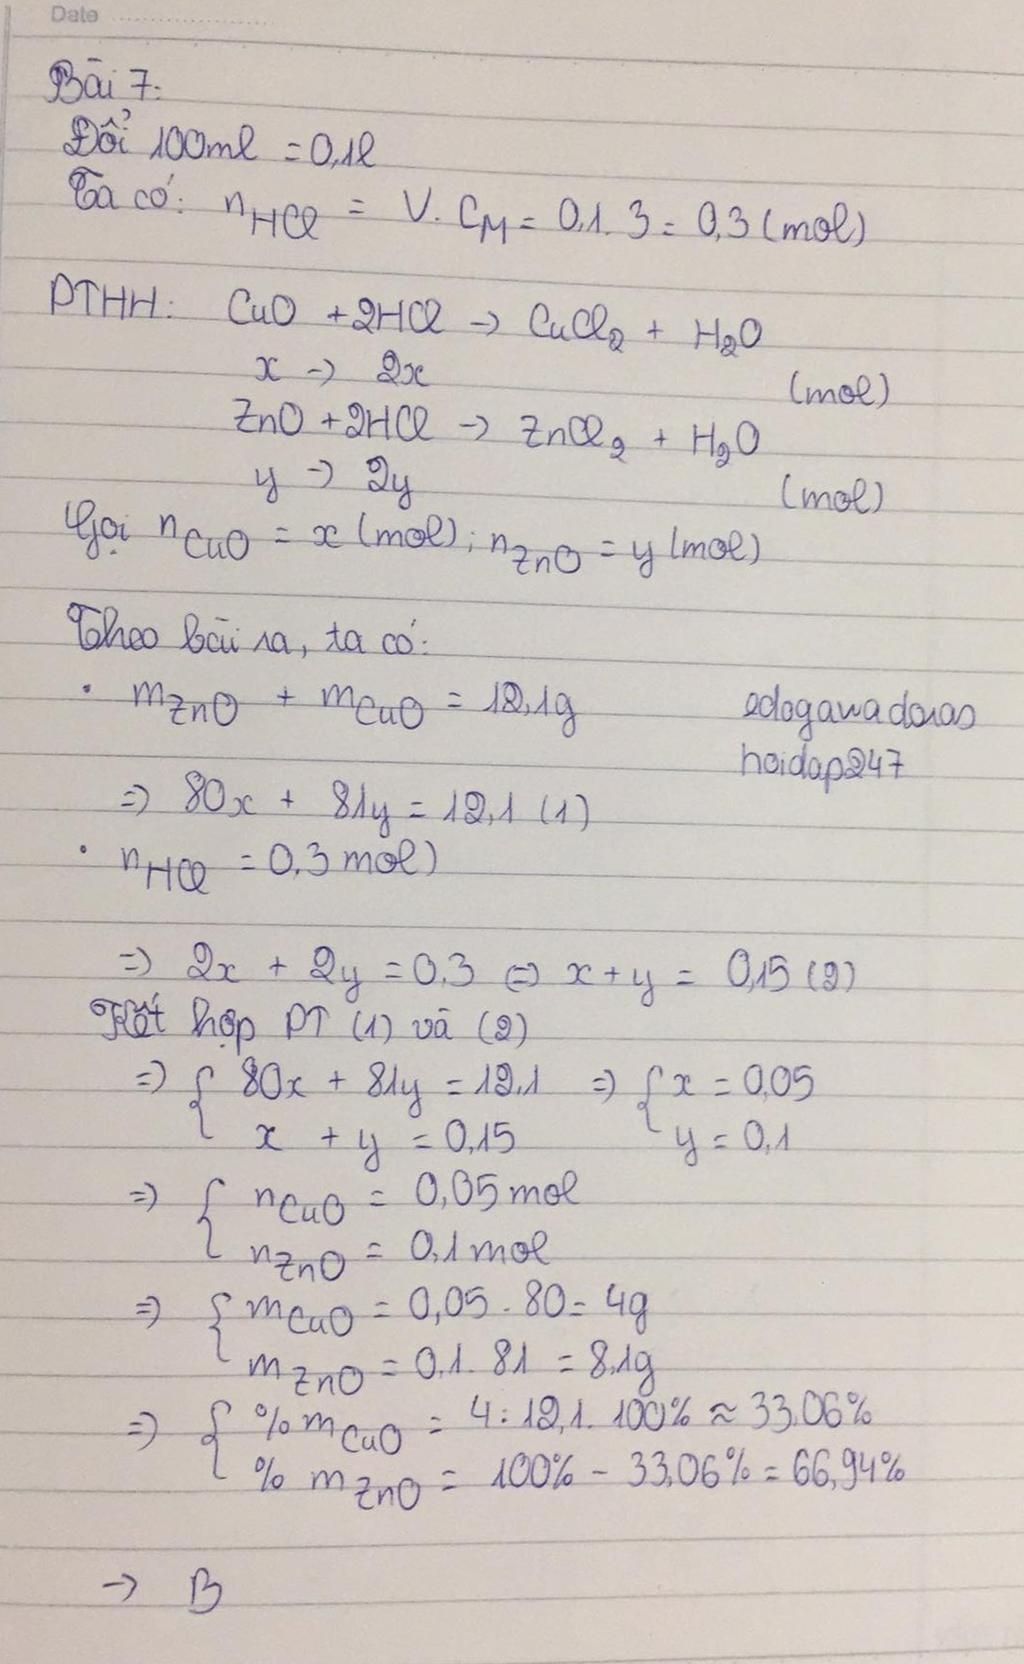 Date
Bài 7:
Đổi 100ml = 0,1l
Ta có: nHCl = V. CM = 0,1. 3 = 0,3 (mol)
PTHH: CuO + 2HCl → CuCl2 + H2O
x → 2x (mol)
ZnO + 2HCl → ZnCl2 + H2O
y → 2y (mol)
Gọi nCuO = x (mol); nZnO = y (mol)
Theo bài ra, ta có:
• mZnO + mCuO = 12,1g
edogawadoras
hoidap247
=> 80x + 81y = 12,1 (1)
• nHCl = 0,3 mol)
=> 2x + 2y = 0,3 <=> x + y = 0,15 (2)
Kết hợp PT (1) và (2)
=> { 80x + 81y = 12,1 => { x = 0,05
x + y = 0,15 y = 0,1
=> { nCuO = 0,05 mol
nZnO = 0,1 mol
=> { mCuO = 0,05 . 80 = 4g
mZnO = 0,1. 81 = 8,1g
=> { % mCuO = 4 : 12,1. 100% ≈ 33,06%
% mZnO = 100% - 33,06% = 66,94%
→ B